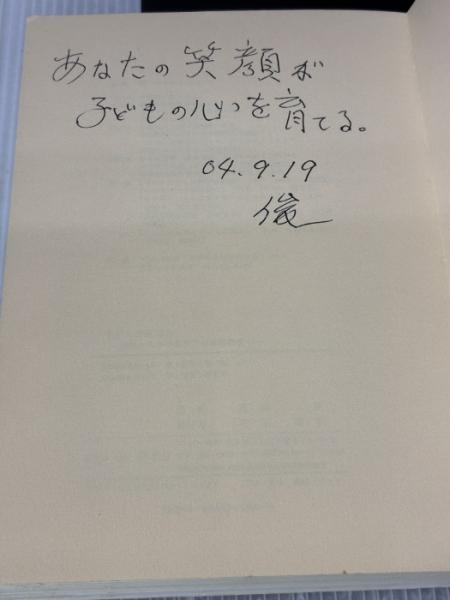 あなたの笑顔が
子どもの心を育てる。
04.9.19
俊